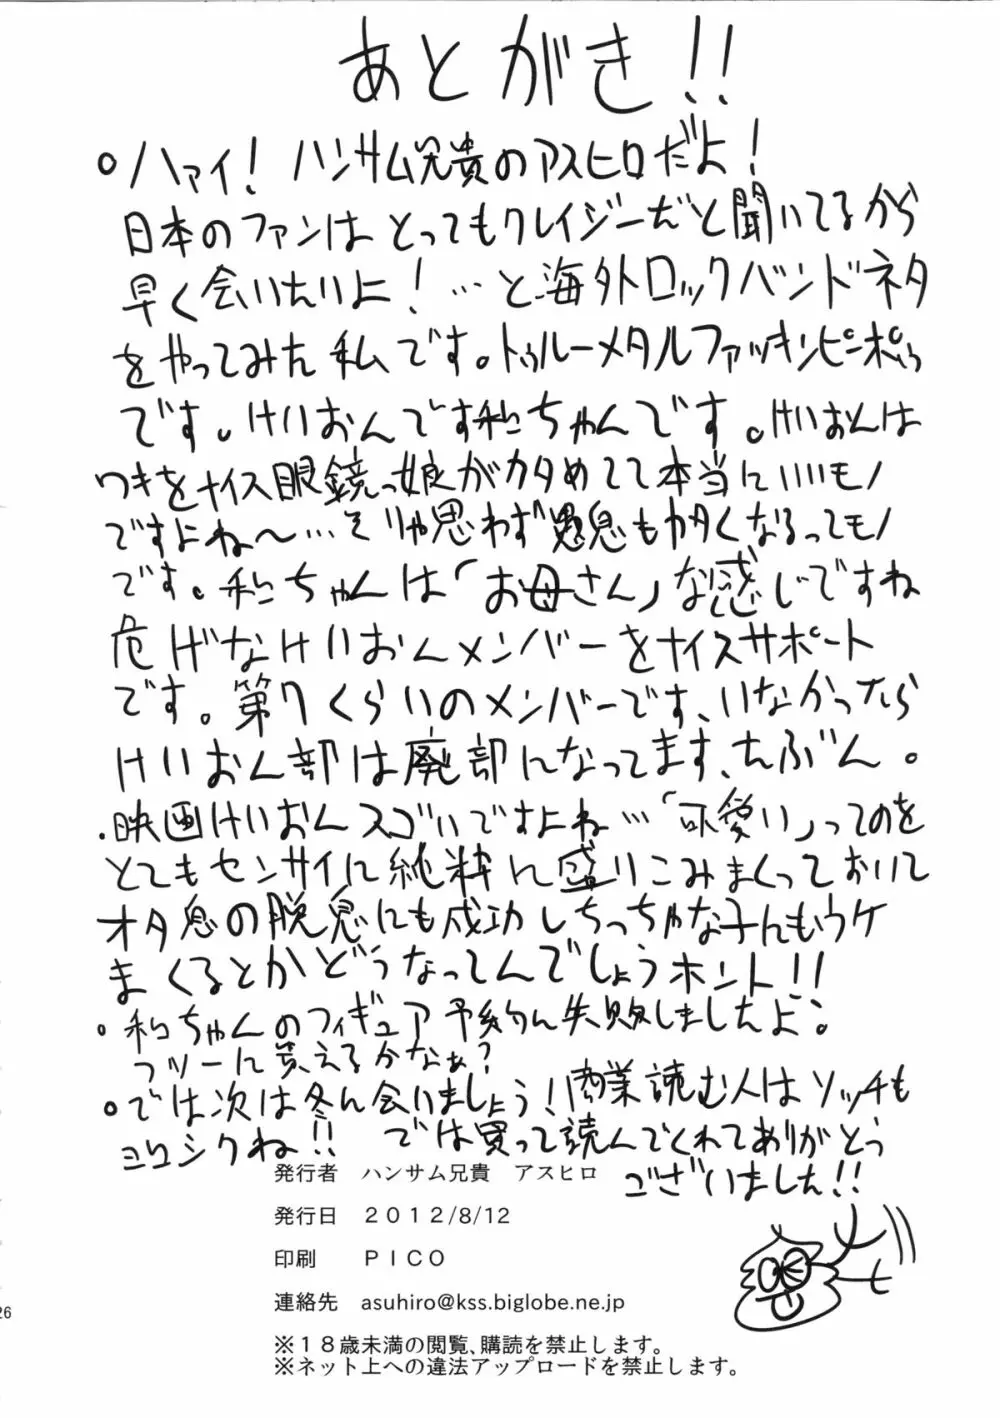 あとがき!!
○ハァイ! ハンサム兄貴のアスヒロだよ!
日本のファンはとってもクレイジーだと聞いてるから
早く会いたいよ! …と海外ロックバンドネタ
をやってみた私です。トゥルーメタルファッキンピーポゥ
です。けいおんです和ちゃんです。けいおんは
ワキをナイス眼鏡っ娘がカタめてて本当にいいモノ
ですよね〜…そりゃ思わず愚息もカタくなるってモノ
です。和ちゃんは「お母さん」な感じですね
危げなけいおんメンバーをナイスサポート
です。第7くらいのメンバーです、いなかったら
けいおん部は廃部になってます、たぶん。
・映画けいおんスゴいですよね…「可愛い」ってのを
とてもセンサイに純粋に盛りこみまくっておいて
オタ臭の脱臭にも成功しちっちゃな子にもウケ
まくるとかどうなってんでしょうホント!!
○和ちゃんのフィギュア予約に失敗しましたよ。
フツーに貰えるかなぁ?
○では次は冬に会いましょう! 商業読む人はソッチも
ヨロシクね!! では買って読んでくれてありがとう
ございました!!
発行者 ハンサム兄貴 アスヒロ
発行日 2012/8/12
印刷 PICO
連絡先 asuhiro@kss.biglobe.ne.jp
※18歳未満の閲覧、購読を禁止します。
※ネット上への違法アップロードを禁止します。
26